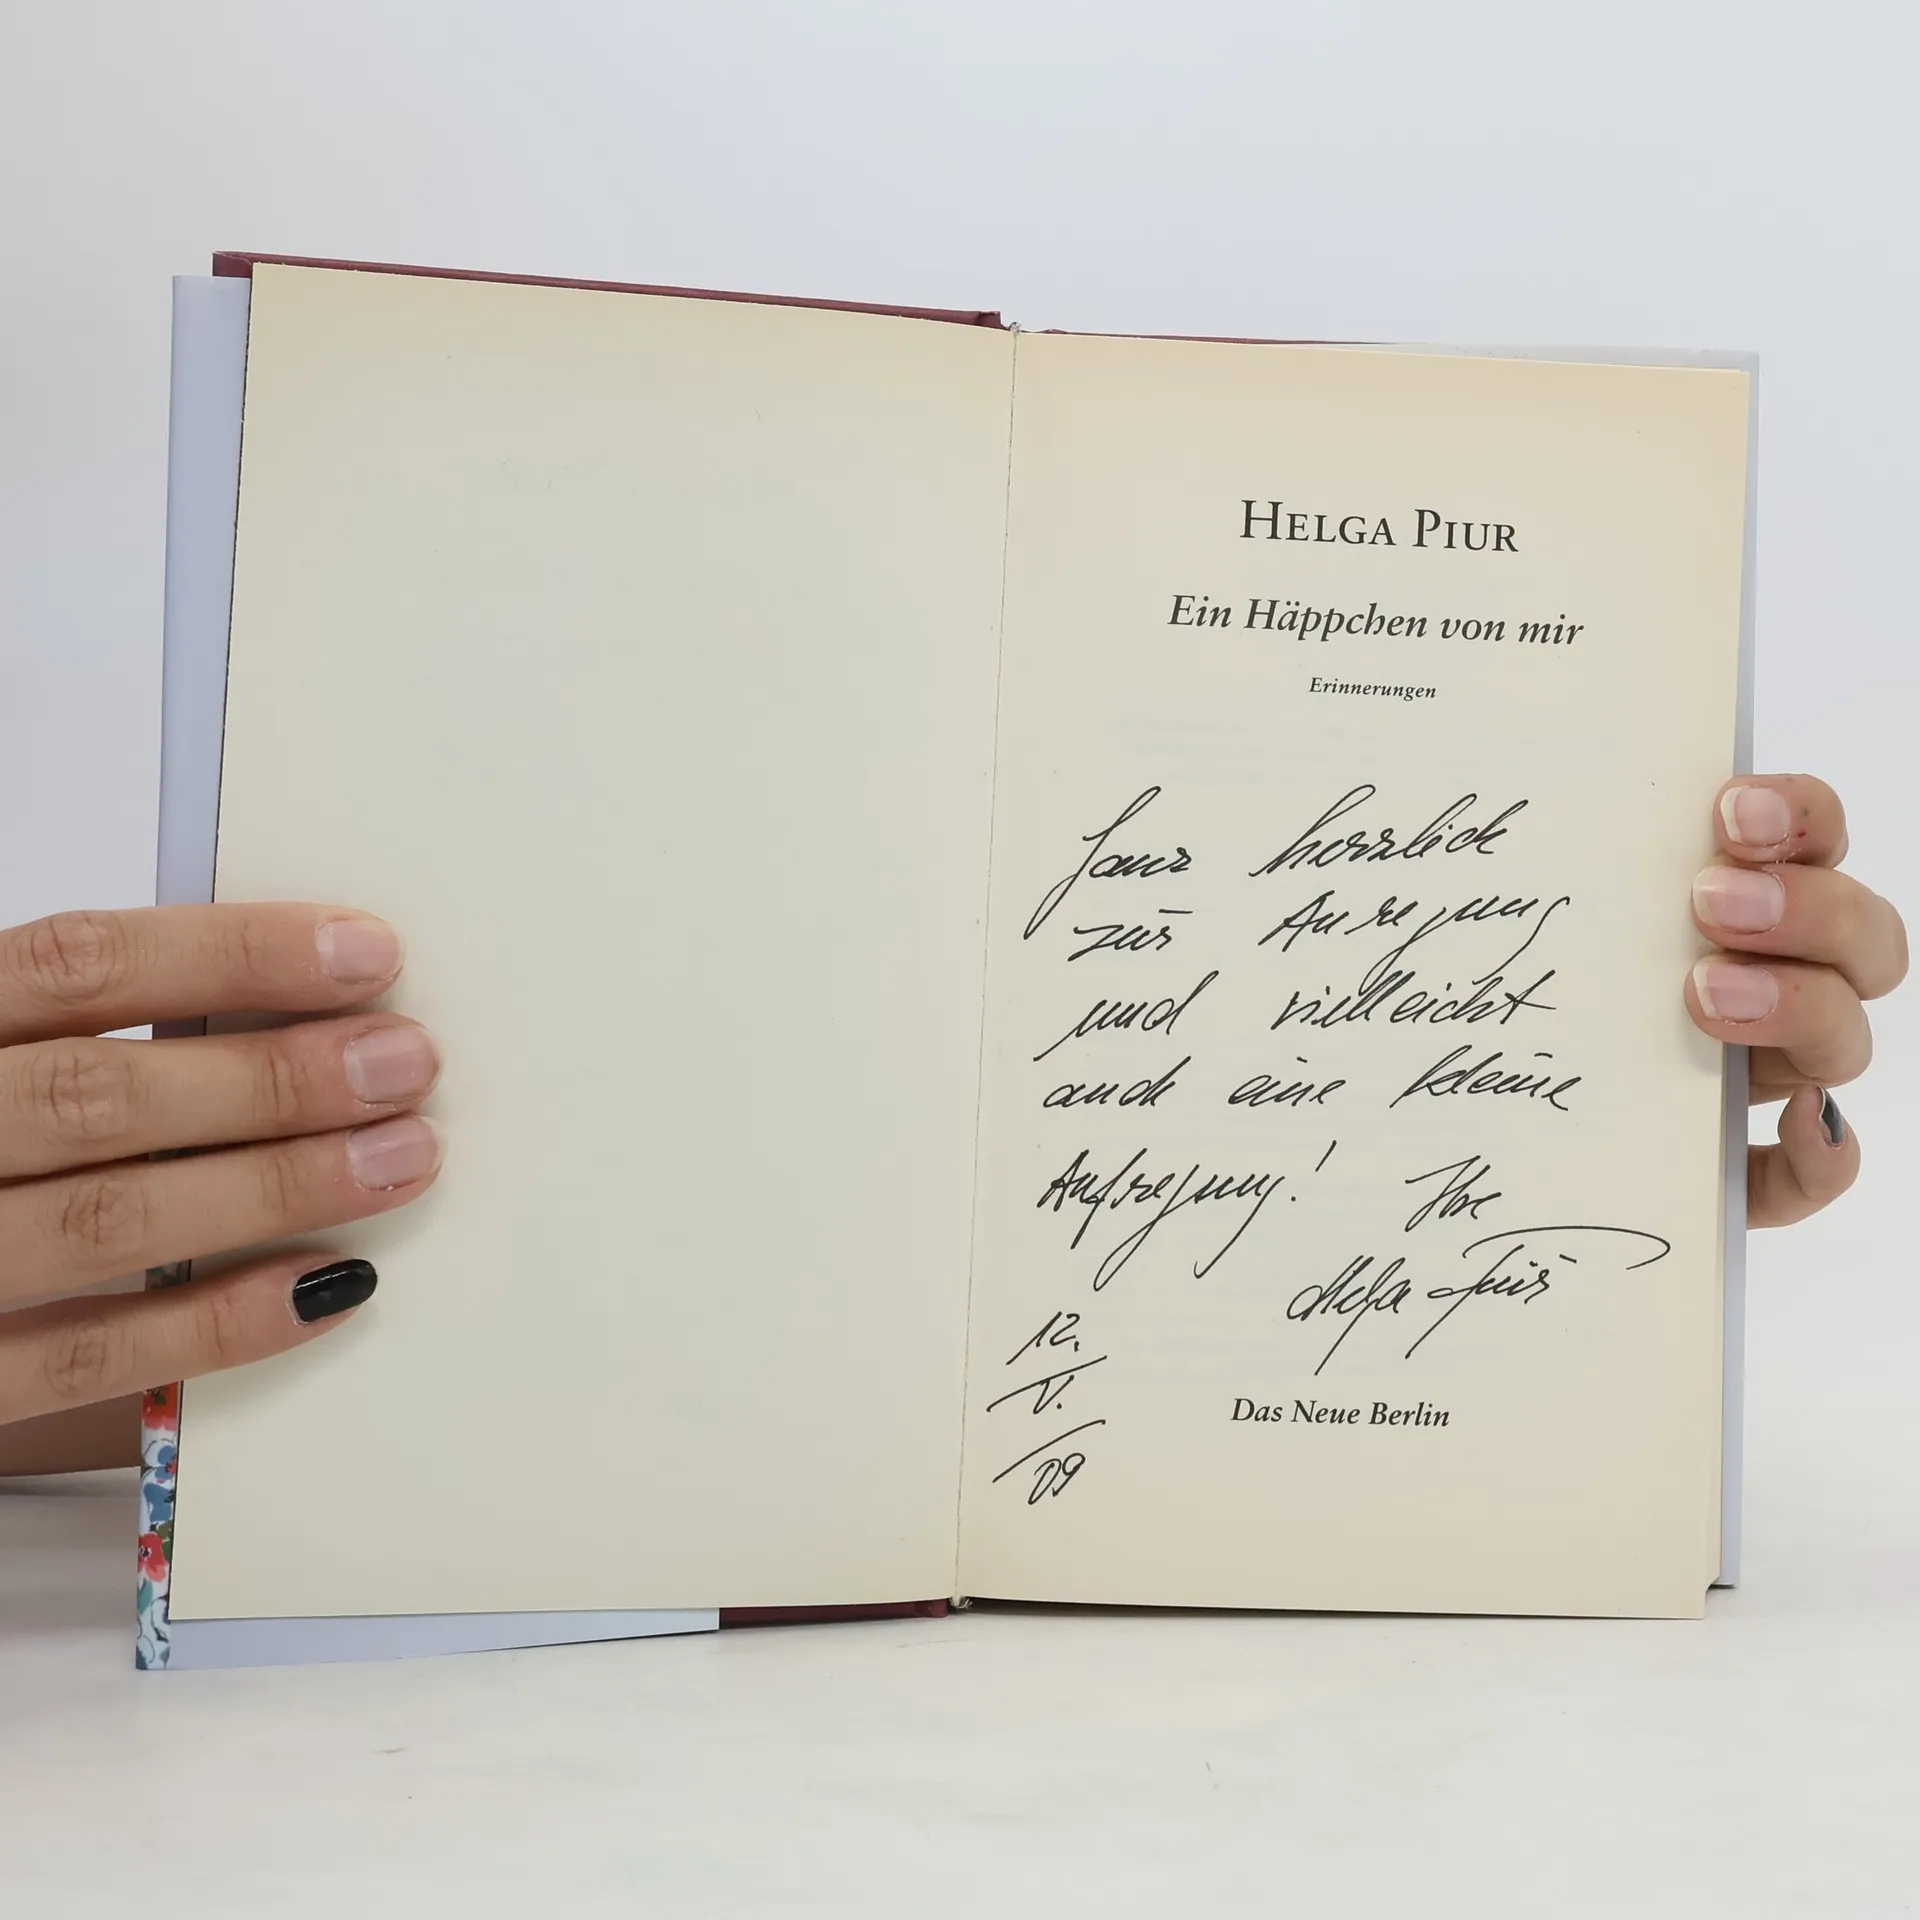 HELGA PIUR
Ein Häppchen von mir
Erinnerungen
Ganz herzlich
zur Anregung
und vielleicht
auch eine kleine
Aufregung! Ihre
Helga Piur
12.
V.
09
Das Neue Berlin